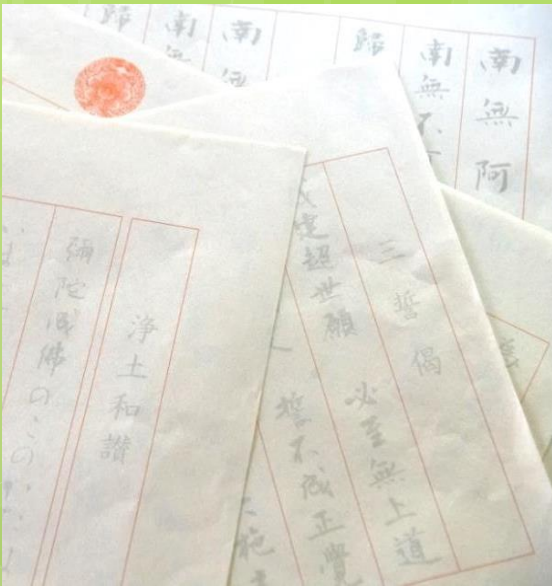 南無阿
南無不
歸
南無
南無
歸
三誓偈
建超世願 必至無上道
誓不成正覺
施
浄土和讃
彌陀成佛のこの
いま